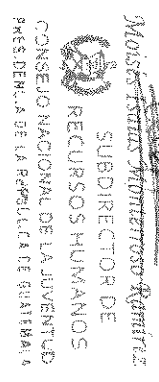 Moisés Isaías Montenroso Ramírez
SUBDIRECTOR DE
RECURSOS HUMANOS
CONSEJO NACIONAL DE LA JUVENTUD
PRESIDENCIA DE LA REPÚBLICA DE GUATEMALA